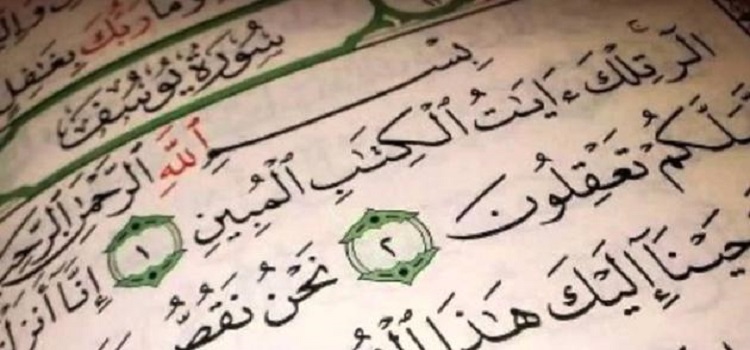 وما ربك بغفل
سورة يوسف
بسم الله الرحمن الرحيم
الر تلك ءايت الكتب المبين ١ إنا أنزل
لعلكم تعقلون ٢ نحن نقص
أوحينا إليك هذا